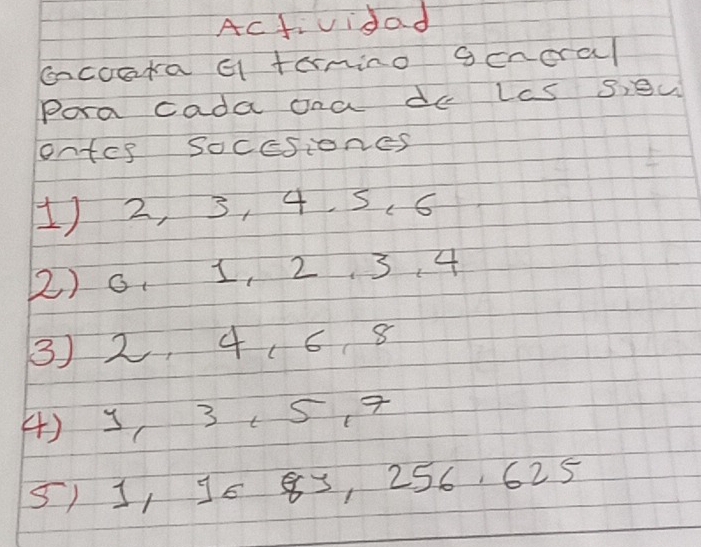 Actividad
encuentra el termino general
Para cada una de las sigu
entes sucesiones
1) 2, 3, 4, 5, 6
2) 0, 1, 2, 3, 4
3) 2, 4, 6, 8
4) 1, 3, 5, 7
5) 1, 16 81, 256, 625